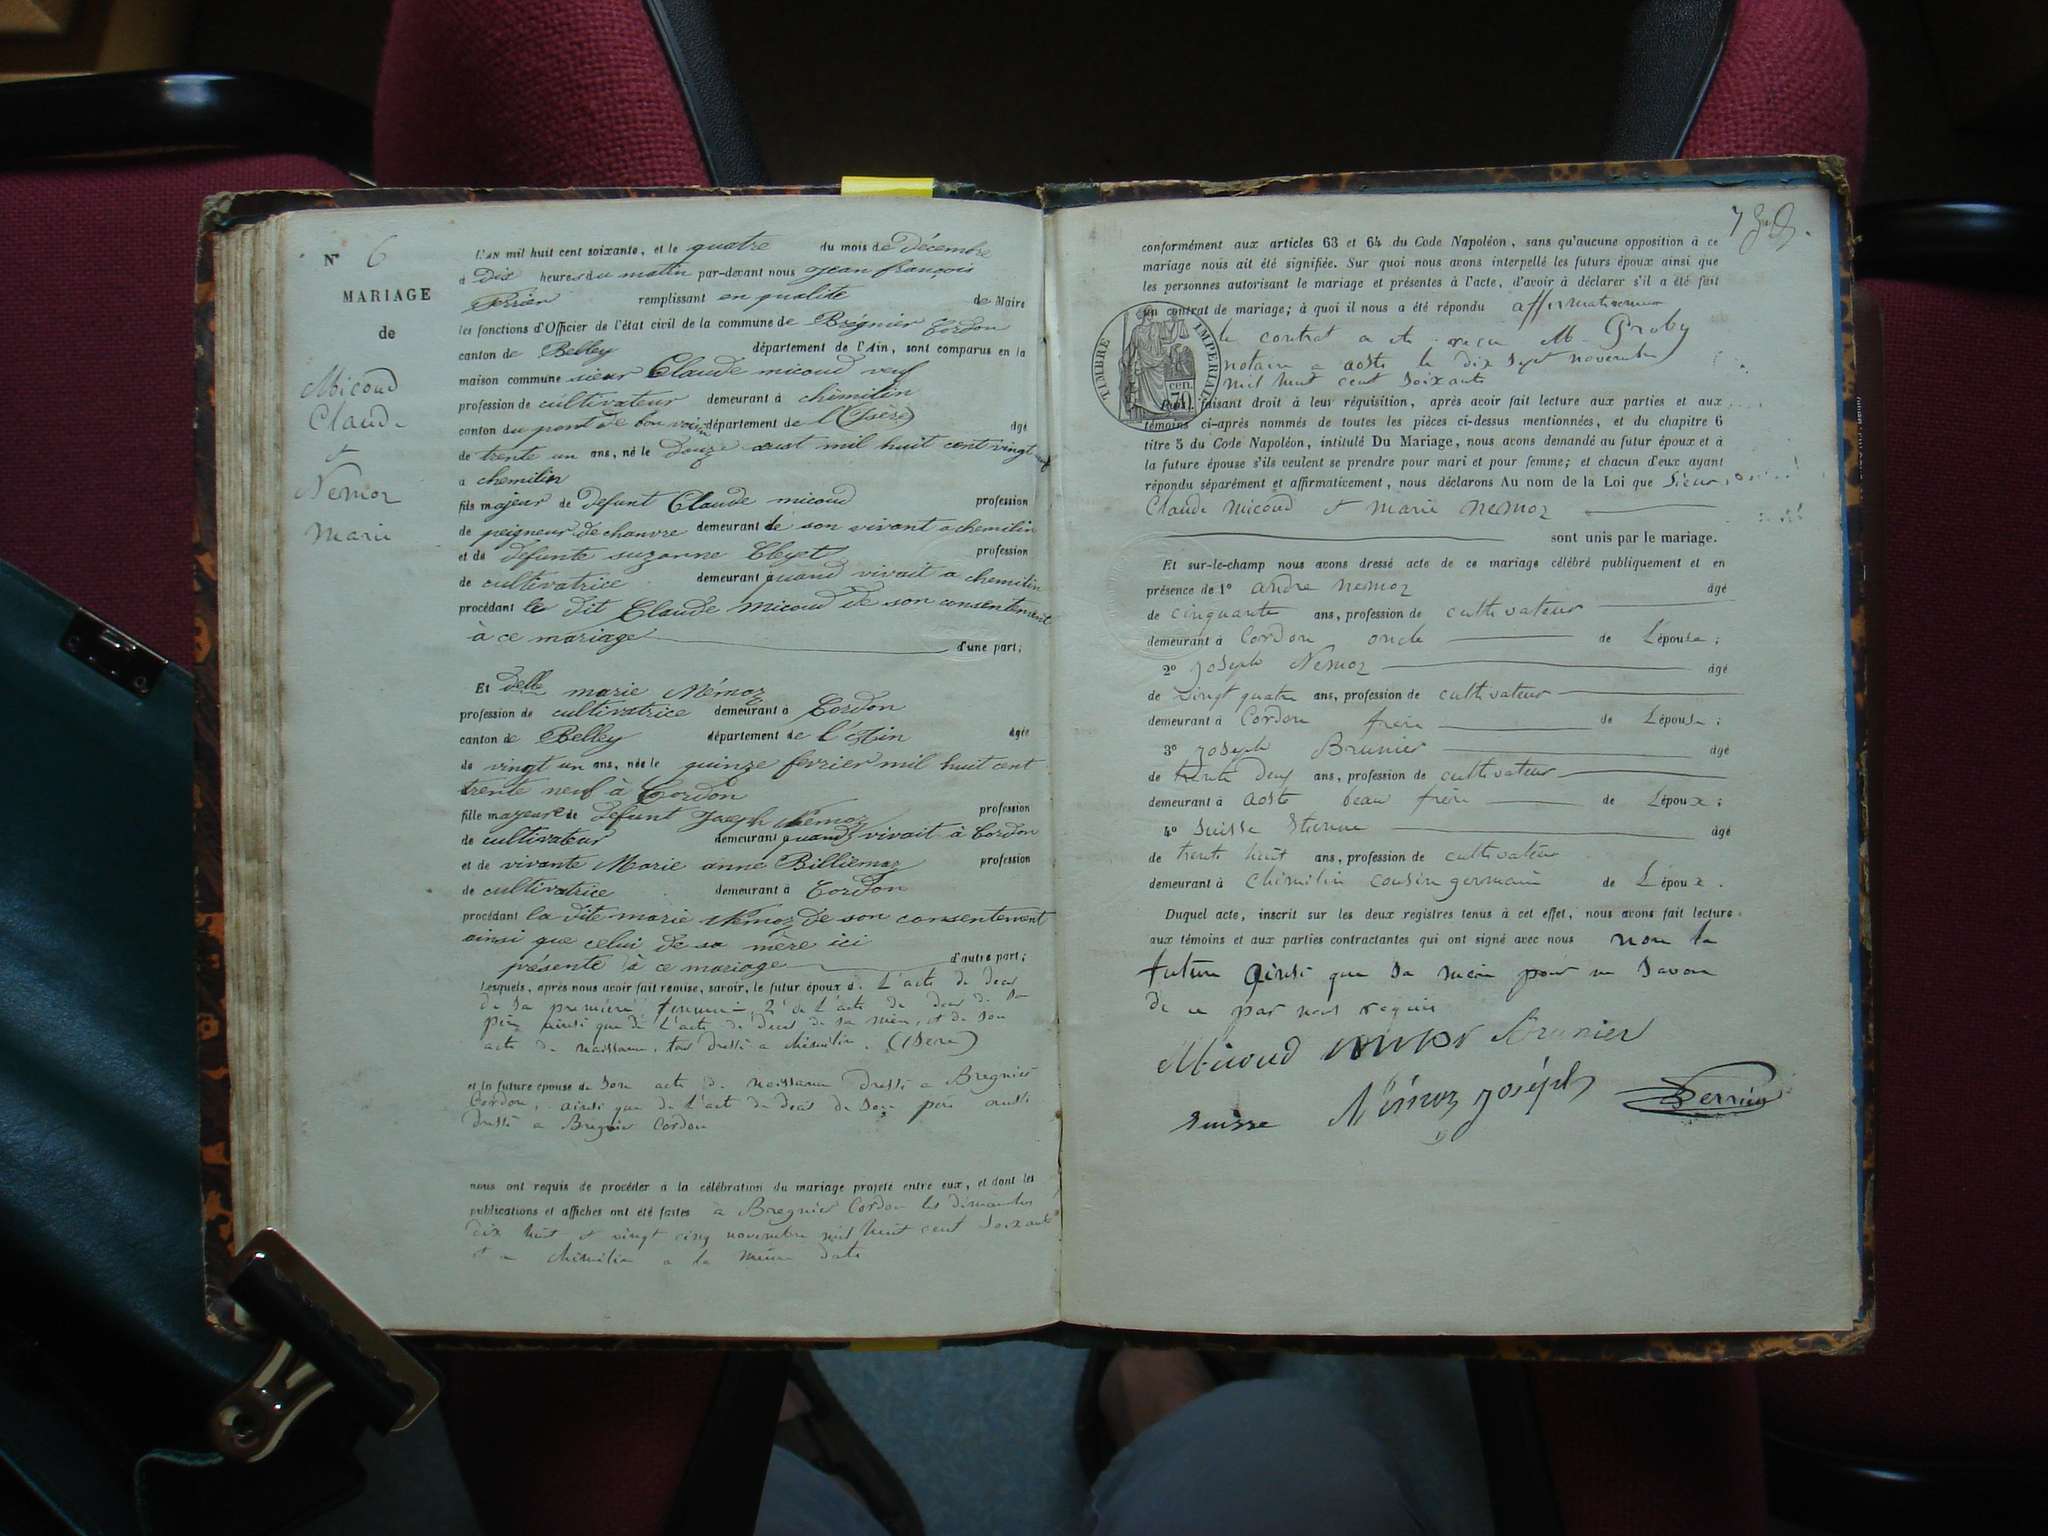 N° 6
MARIAGE
de
Micoud
Claude
et
Nemoz
Marie
L'AN mil huit cent soixante, et le quatre du mois de Décembre
à Dix heures du matin par-devant nous Jean françois
Perrier remplissant en qualité de Maire
les fonctions d'Officier de l'état civil de la commune de Brégnier Cordon
canton de Belley département de l'Ain, sont comparus en la
maison commune sieur Claude micoud veuf
profession de cultivateur demeurant à chimilin
canton du pont de bon voisin département de l'(Isere) âgé
de trente un ans, né le Douze aout mil huit cent vingt neuf
à chemilin
fils majeur de Defunt Claude micoud profession
de peigneur de chanvre demeurant de son vivant a chemilin
et de defunte suzanne Cleyet profession
de cultivatrice demeurant quand vivait a chemilin
procédant le dit Claude micoud de son consentement
à ce mariage d'une part;
Et delle marie Némoz
profession de cultivatrice demeurant à Cordon
canton de Belley département de l'Ain âgée
de vingt un ans, née le quinze fevrier mil huit cent
trente neuf à Cordon
fille majeure de Defunt Joseph Nemoz profession
de cultivateur demeurant quand vivait à Cordon
et de vivante Marie anne Billiemaz profession
de cultivatrice demeurant à Cordon
procédant la dite marie Némoz de son consentement
ainsi que celui de sa mère ici
présente à ce mariage d'autre part;
Lesquels, après nous avoir fait remise, savoir, le futur époux de L'acte de deces
de sa premiere femme, 2° de L'acte de deces de son
père ainsi que de L'acte de deces de sa mère, et de son
acte de naissance, tous dressés a chimilin. (Isere)
et la future épouse de son acte de naissance dressé a Bregnier
Cordon, ainsi que de l'acte de deces de son père aussi
dressé a Bregnier Cordon
nous ont requis de procéder à la célébration du mariage projeté entre eux, et dont les
publications et affiches ont été faites à Bregnier Cordon les dimanches
dix huit et vingt cinq novembre mil huit cent soixante
et a chimilin a la meme date
7
conformément aux articles 63 et 64 du Code Napoléon, sans qu'aucune opposition à ce
mariage nous ait été signifiée. Sur quoi nous avons interpellé les futurs époux ainsi que
les personnes autorisant le mariage et présentes à l'acte, d'avoir à déclarer s'il a été fait
un contrat de mariage; à quoi il nous a été répondu affirmativement
le contrat a été reçu M. Proby
notaire a aoste le dix sept novembre
mil huit cent soixante
TIMBRE IMPERIAL
70 cen.
faisant droit à leur réquisition, après avoir fait lecture aux parties et aux
témoins ci-après nommés de toutes les pièces ci-dessus mentionnées, et du chapitre 6
titre 5 du Code Napoléon, intitulé Du Mariage, nous avons demandé au futur époux et à
la future épouse s'ils veulent se prendre pour mari et pour femme; et chacun d'eux ayant
répondu séparément et affirmativement, nous déclarons Au nom de la Loi que Sieur
Claude Micoud et Marie Nemoz
sont unis par le mariage.
Et sur-le-champ nous avons dressé acte de ce mariage célébré publiquement et en
présence de 1° andre Nemoz âgé
de cinquante ans, profession de cultivateur
demeurant à Cordon oncle de L'épouse;
2° Joseph Nemoz âgé
de vingt quatre ans, profession de cultivateur
demeurant à Cordon frère de L'épouse;
3° Joseph Brunier âgé
de trente deux ans, profession de cultivateur
demeurant à aoste beau frère de L'époux;
4° Suisse Etienne âgé
de trente huit ans, profession de cultivateur
demeurant à chimilin cousin germain de L'époux.
Duquel acte, inscrit sur les deux registres tenus à cet effet, nous avons fait lecture
aux témoins et aux parties contractantes qui ont signé avec nous non la
future ainsi que sa mère pour ne savoir
de ce par nous requis
Micoud Brunier
suisse Némoz joséph Perrier